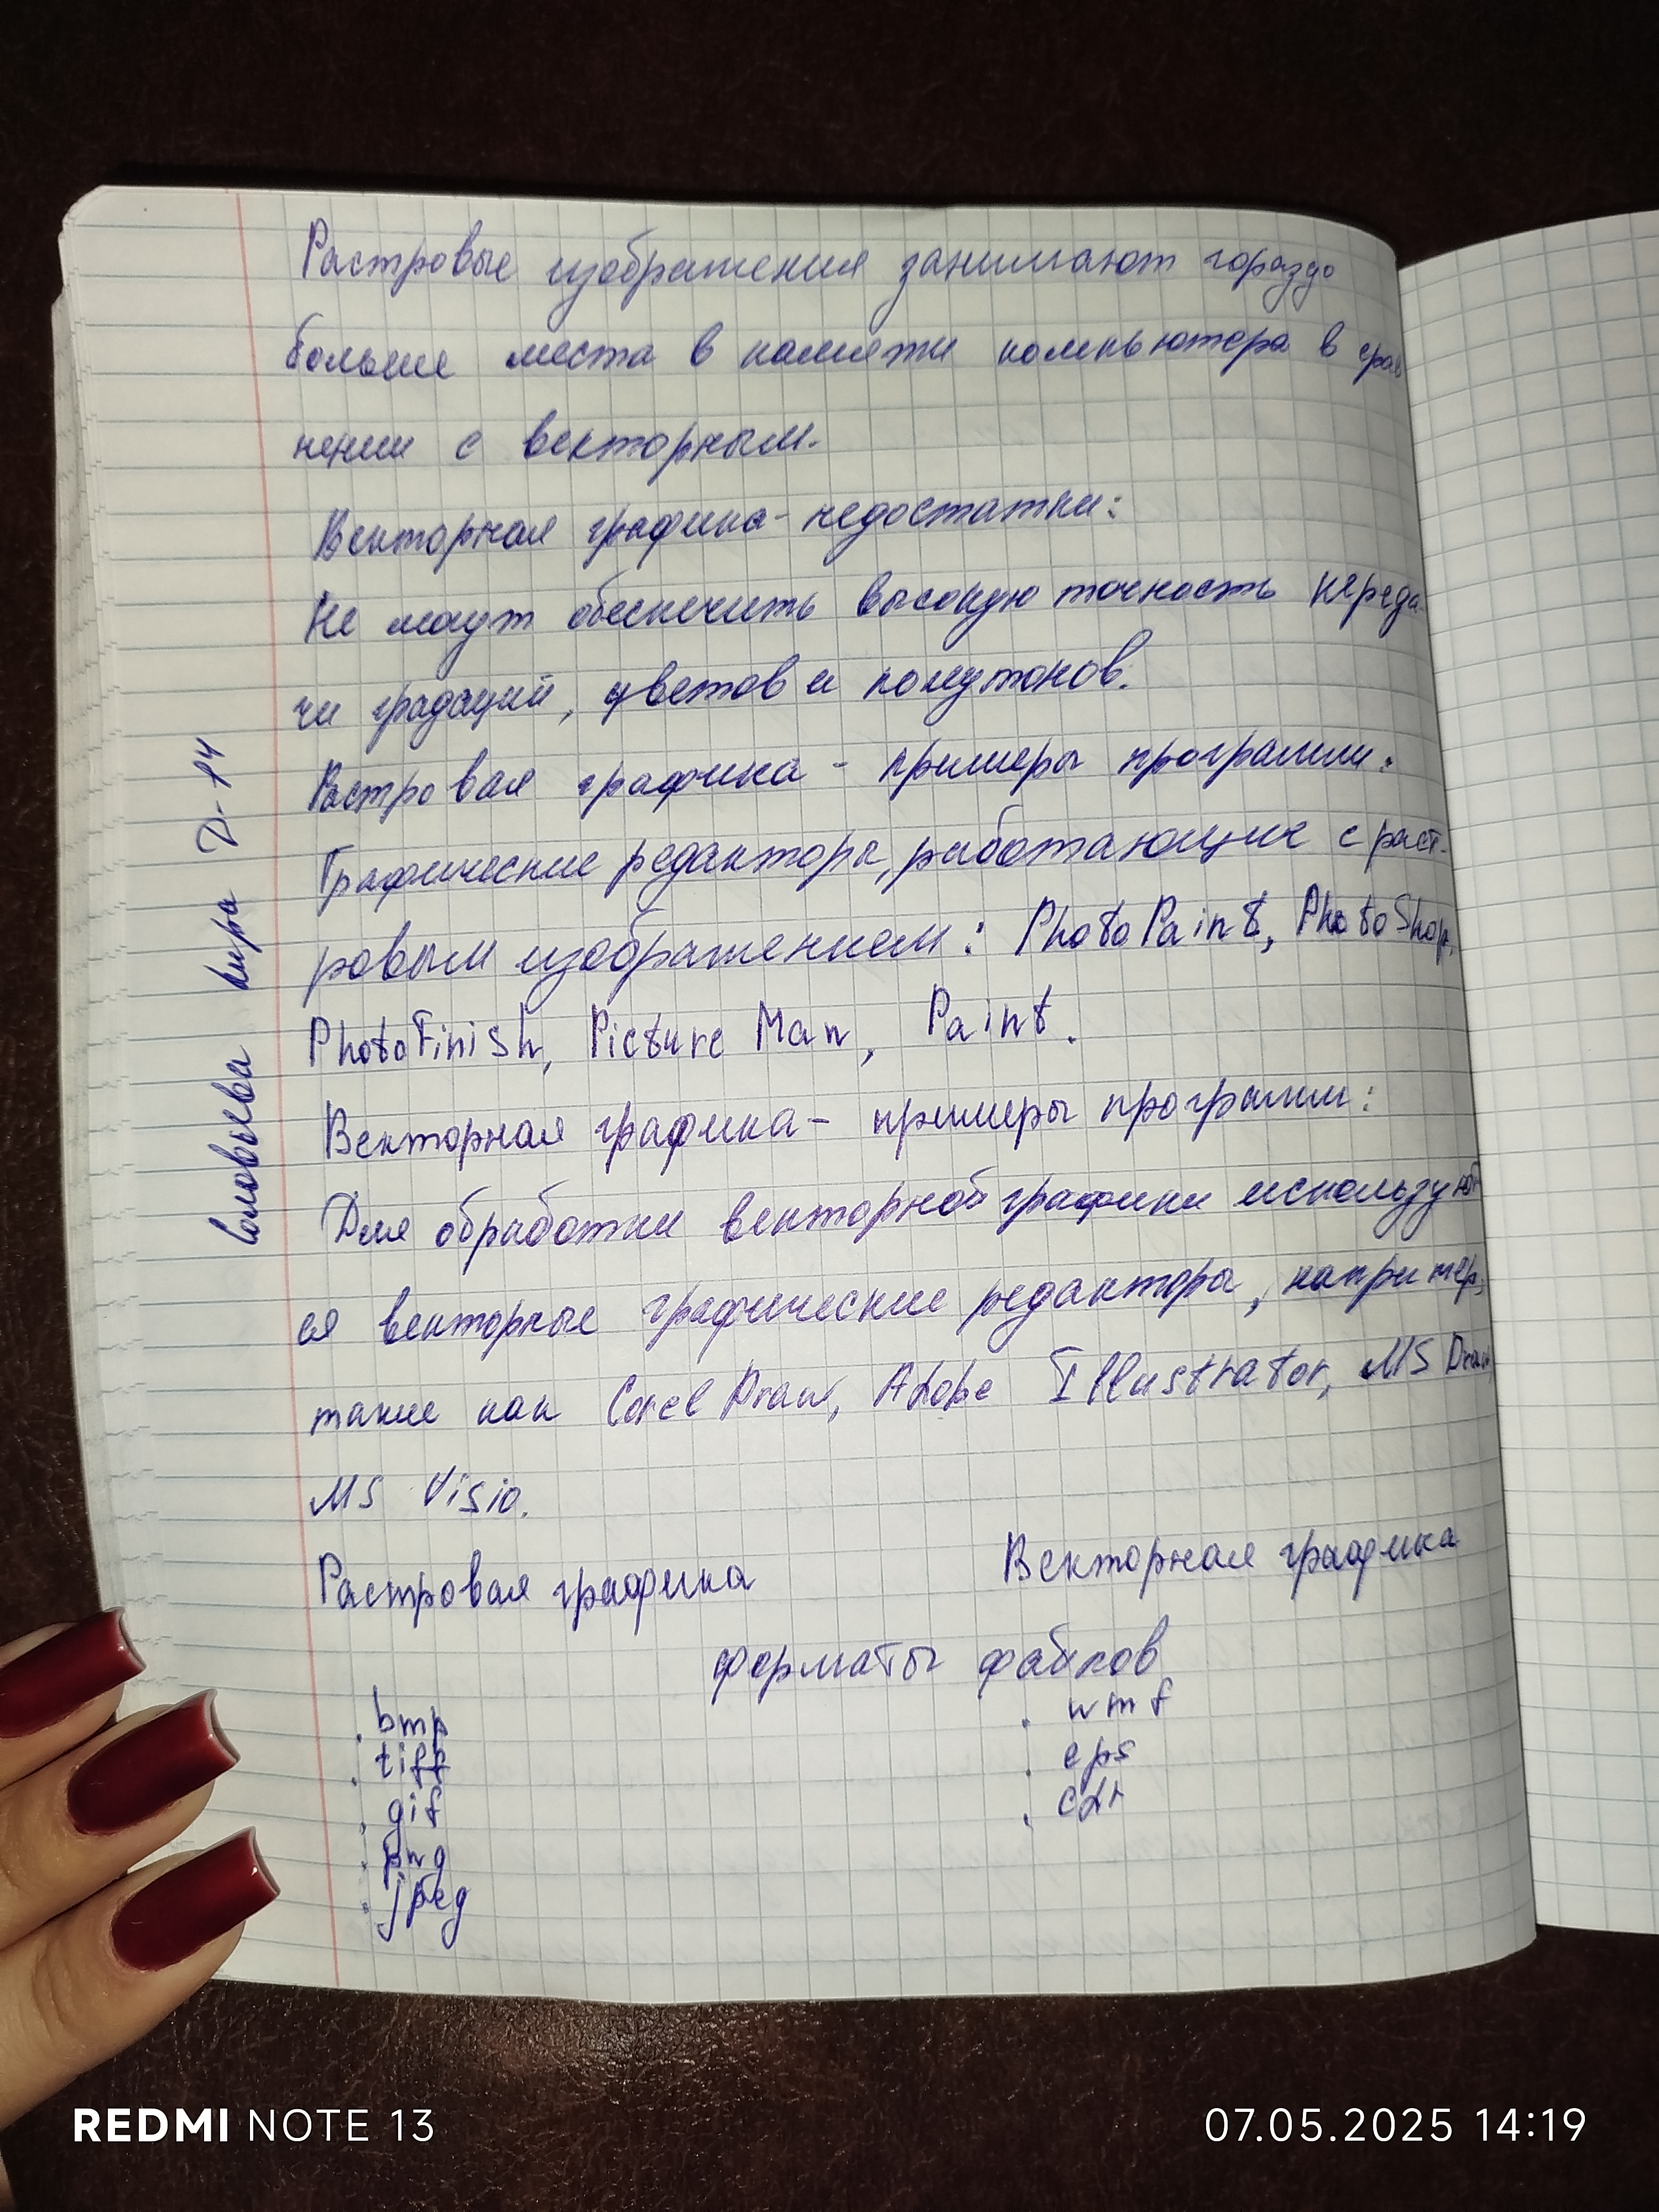 Растровые изображения занимают гораздо
больше места в памяти компьютера в срав
нении с векторным.
Векторная графика - недостатки:
Не могут обеспечить высокую точность переда-
чи градаций, цветов и полутонов.
Растровая графика - примеры программ:
Графические редакторы, работающие с раст-
ровым изображением: PhotoPaint, PhotoShop,
PhotoFinish, Picture Man, Paint.
Векторная графика - примеры программ:
Для обработки векторной графики используют
ся векторные графические редакторы, например,
такие как Corel Draw, Adobe Illustrator, MS Draw,
MS Visio.
Растровая графика Векторная графика
форматы файлов
. bmp . wmf
. tiff . eps
. gif . cdr
. png
. jpeg
Кира Д-14
REDMI NOTE 13 07.05.2025 14:19